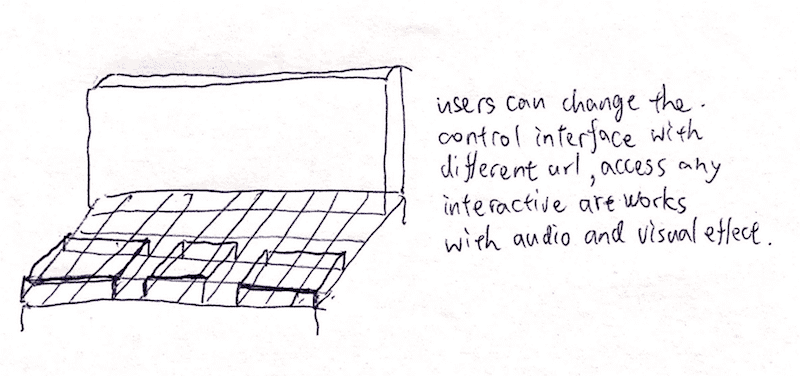 users can change the.
control interface with
different url, access any
interactive art works
with audio and visual effect.